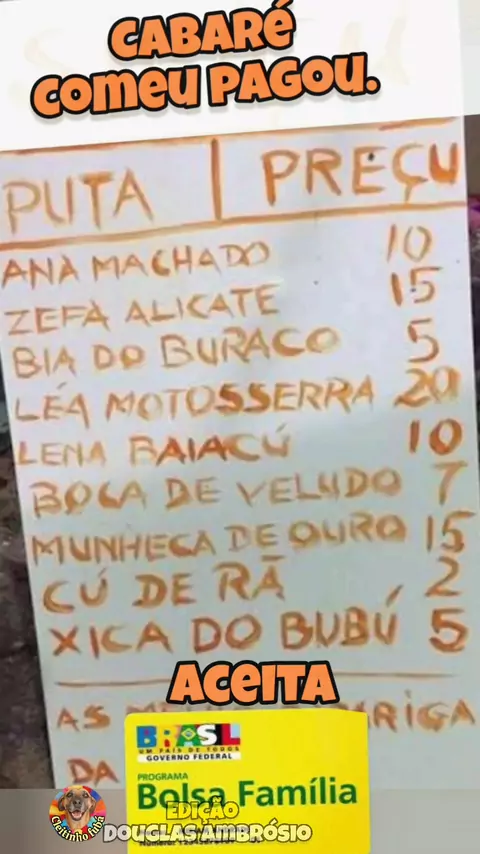 CABARÉ
COMEU PAGOU.
PUTA | PREÇU
ANA MACHADO 10
ZEFA ALICATE 15
BIA DO BURACO 5
LÉA MOTOSSERRA 20
LENA BAIACÚ 10
BOCA DE VELUDO 7
MUNHECA DE OURO 15
CÚ DE RÃ 2
XICA DO BUBÚ 5
ACEITA
AS
DA
BRASIL
UM PAÍS DE TODOS
GOVERNO FEDERAL
PROGRAMA
Bolsa Família
EDIÇÃO
DOUGLAS AMBRÓSIO
Cleitinho fuba